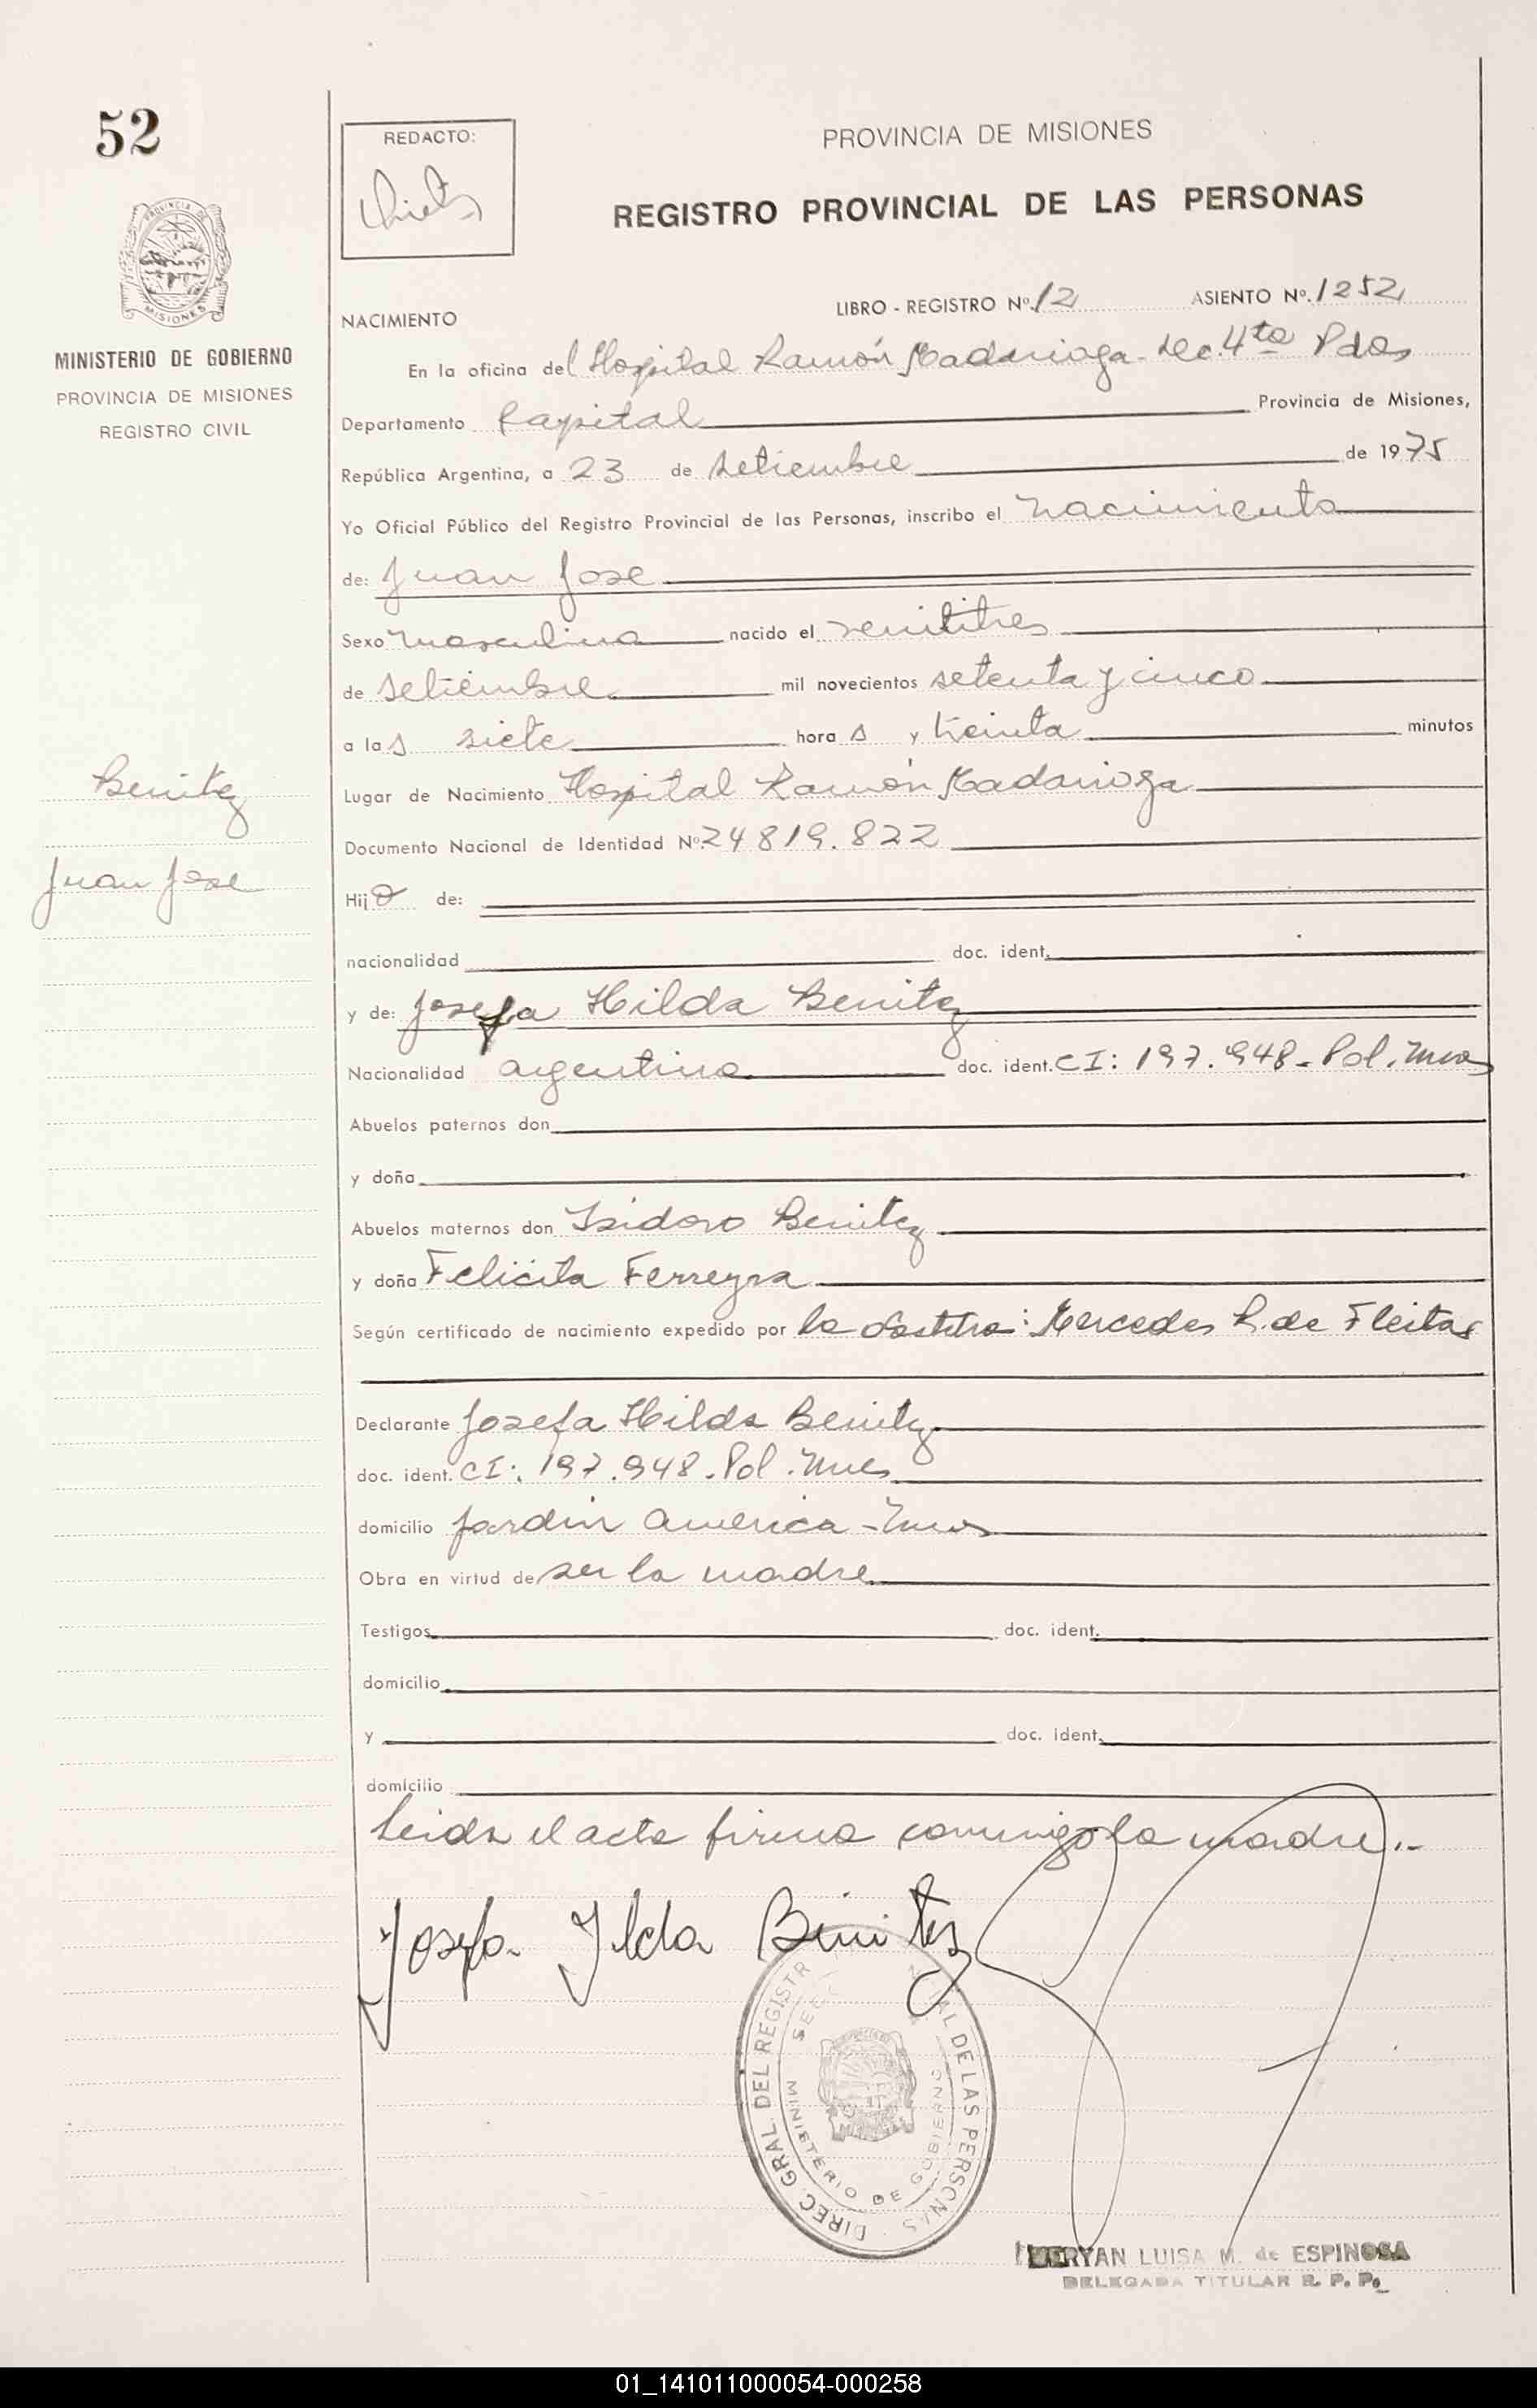 52
REDACTO:
PROVINCIA DE MISIONES
REGISTRO PROVINCIAL DE LAS PERSONAS
PROVINCIA DE
MISIONES
MINISTERIO DE GOBIERNO
PROVINCIA DE MISIONES
REGISTRO CIVIL
LIBRO - REGISTRO Nº. 12 ASIENTO Nº. 1252
NACIMIENTO
En la oficina del Hospital Ramón Madariaga - Sec. 4ta Pdas
Departamento Capital Provincia de Misiones,
República Argentina, a 23 de setiembre de 1975
Yo Oficial Público del Registro Provincial de las Personas, inscribo el nacimiento
de: Juan Jose
Sexo masculino nacido el veintitres
de setiembre mil novecientos setenta y cinco
a las siete horas y treinta minutos
Benitez
Juan Jose
Lugar de Nacimiento Hospital Ramón Madariaga
Documento Nacional de Identidad Nº 24819.822
Hijo de:
nacionalidad doc. ident.
y de: Josefa Hilda Benitez
Nacionalidad argentina doc. ident. CI: 197.948 - Pol. Mnes
Abuelos paternos don
y doña
Abuelos maternos don Isidoro Benitez
y doña Felicita Ferreyra
Según certificado de nacimiento expedido por la obstetra: Mercedes R. de Fleitas
Declarante Josefa Hilda Benitez
doc. ident. CI: 197.948 - Pol. Mnes
domicilio Jardin America - Mnes
Obra en virtud de ser la madre
Testigos doc. ident.
domicilio
y doc. ident.
domicilio
Leida el acta firma conmigo la madre.-
Josefa Ilda Benitez
DIREC. GRAL DEL REGISTR AL DE LAS PERSONAS
MINISTERIO DE GOBIERNO
MERYAN LUISA M. de ESPINOSA
DELEGADA TITULAR R. P. P.
01_141011000054-000258